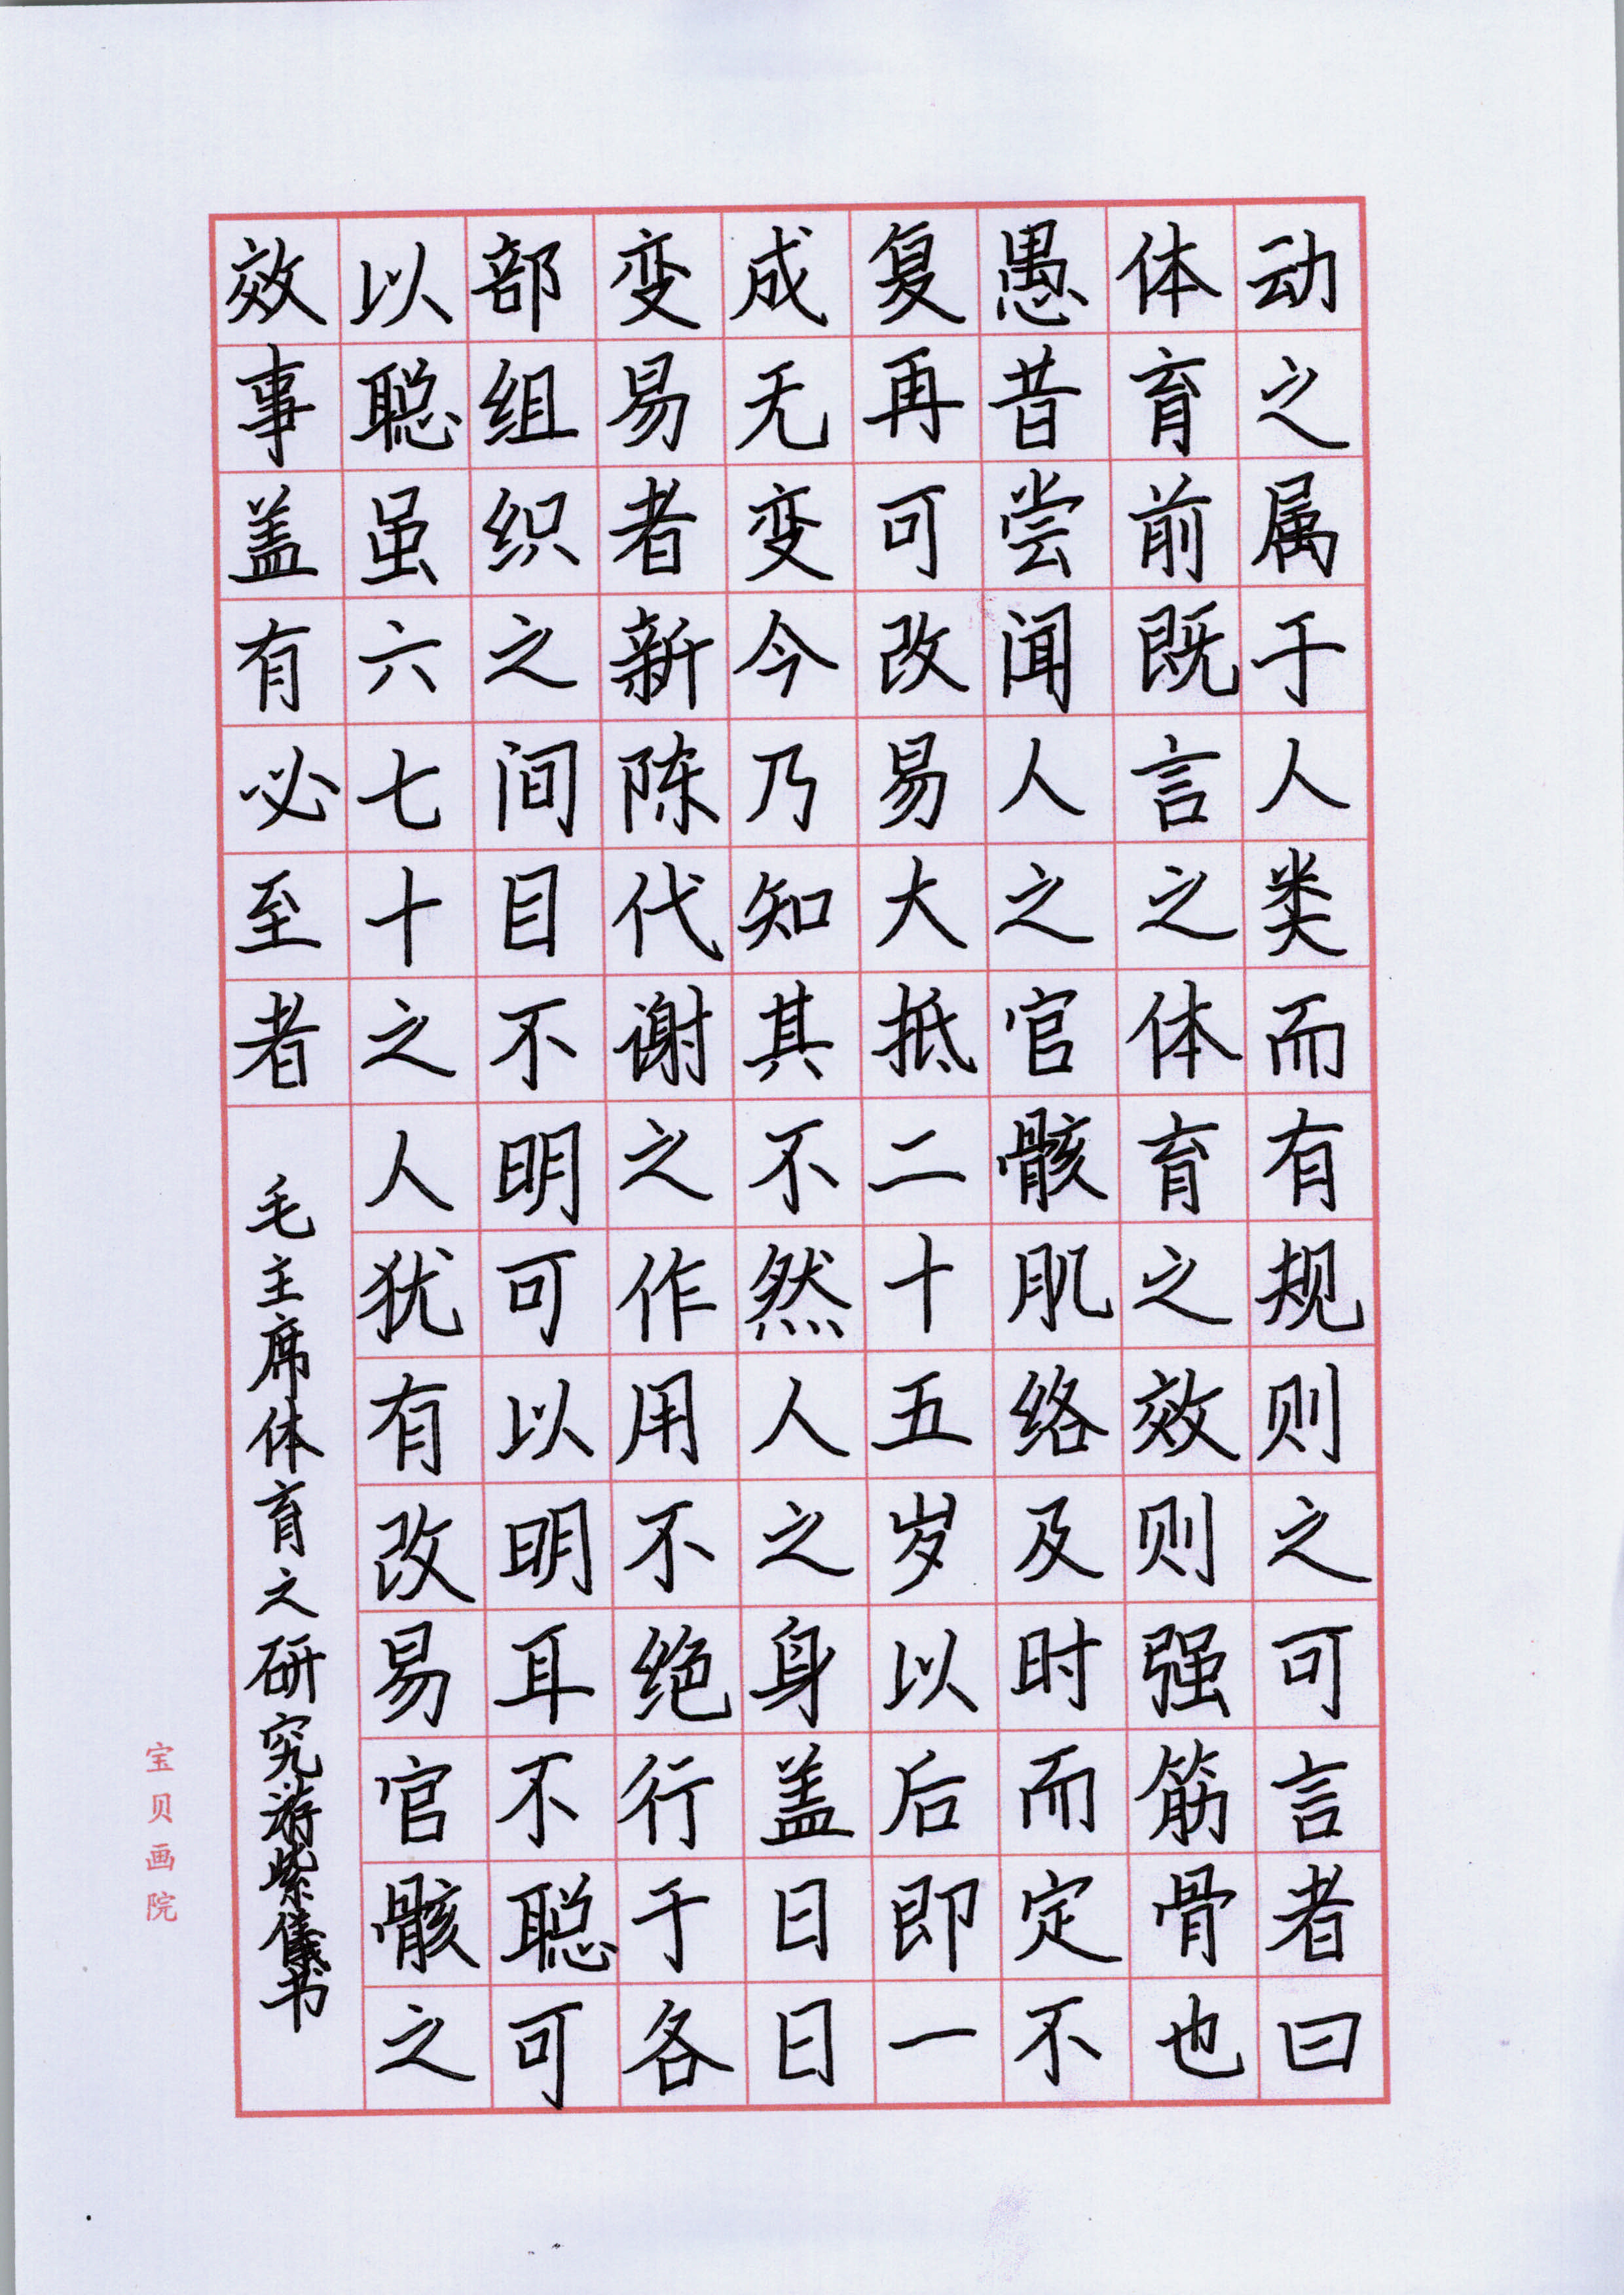 动之属于人类而有规则之可言者曰
体育前既言之体育之效则强筋骨也
愚昔尝闻人之官骸肌络及时而定不
复再可改易大抵二十五岁以后即一
成无变今乃知其不然人之身盖日日
变易者新陈代谢之作用不绝行于各
部组织之间目不明可以明耳不聪可
以聪虽六七十之人犹有改易官骸之
效事盖有必至者
毛主席体育之研究游紫仪书
宝贝画院